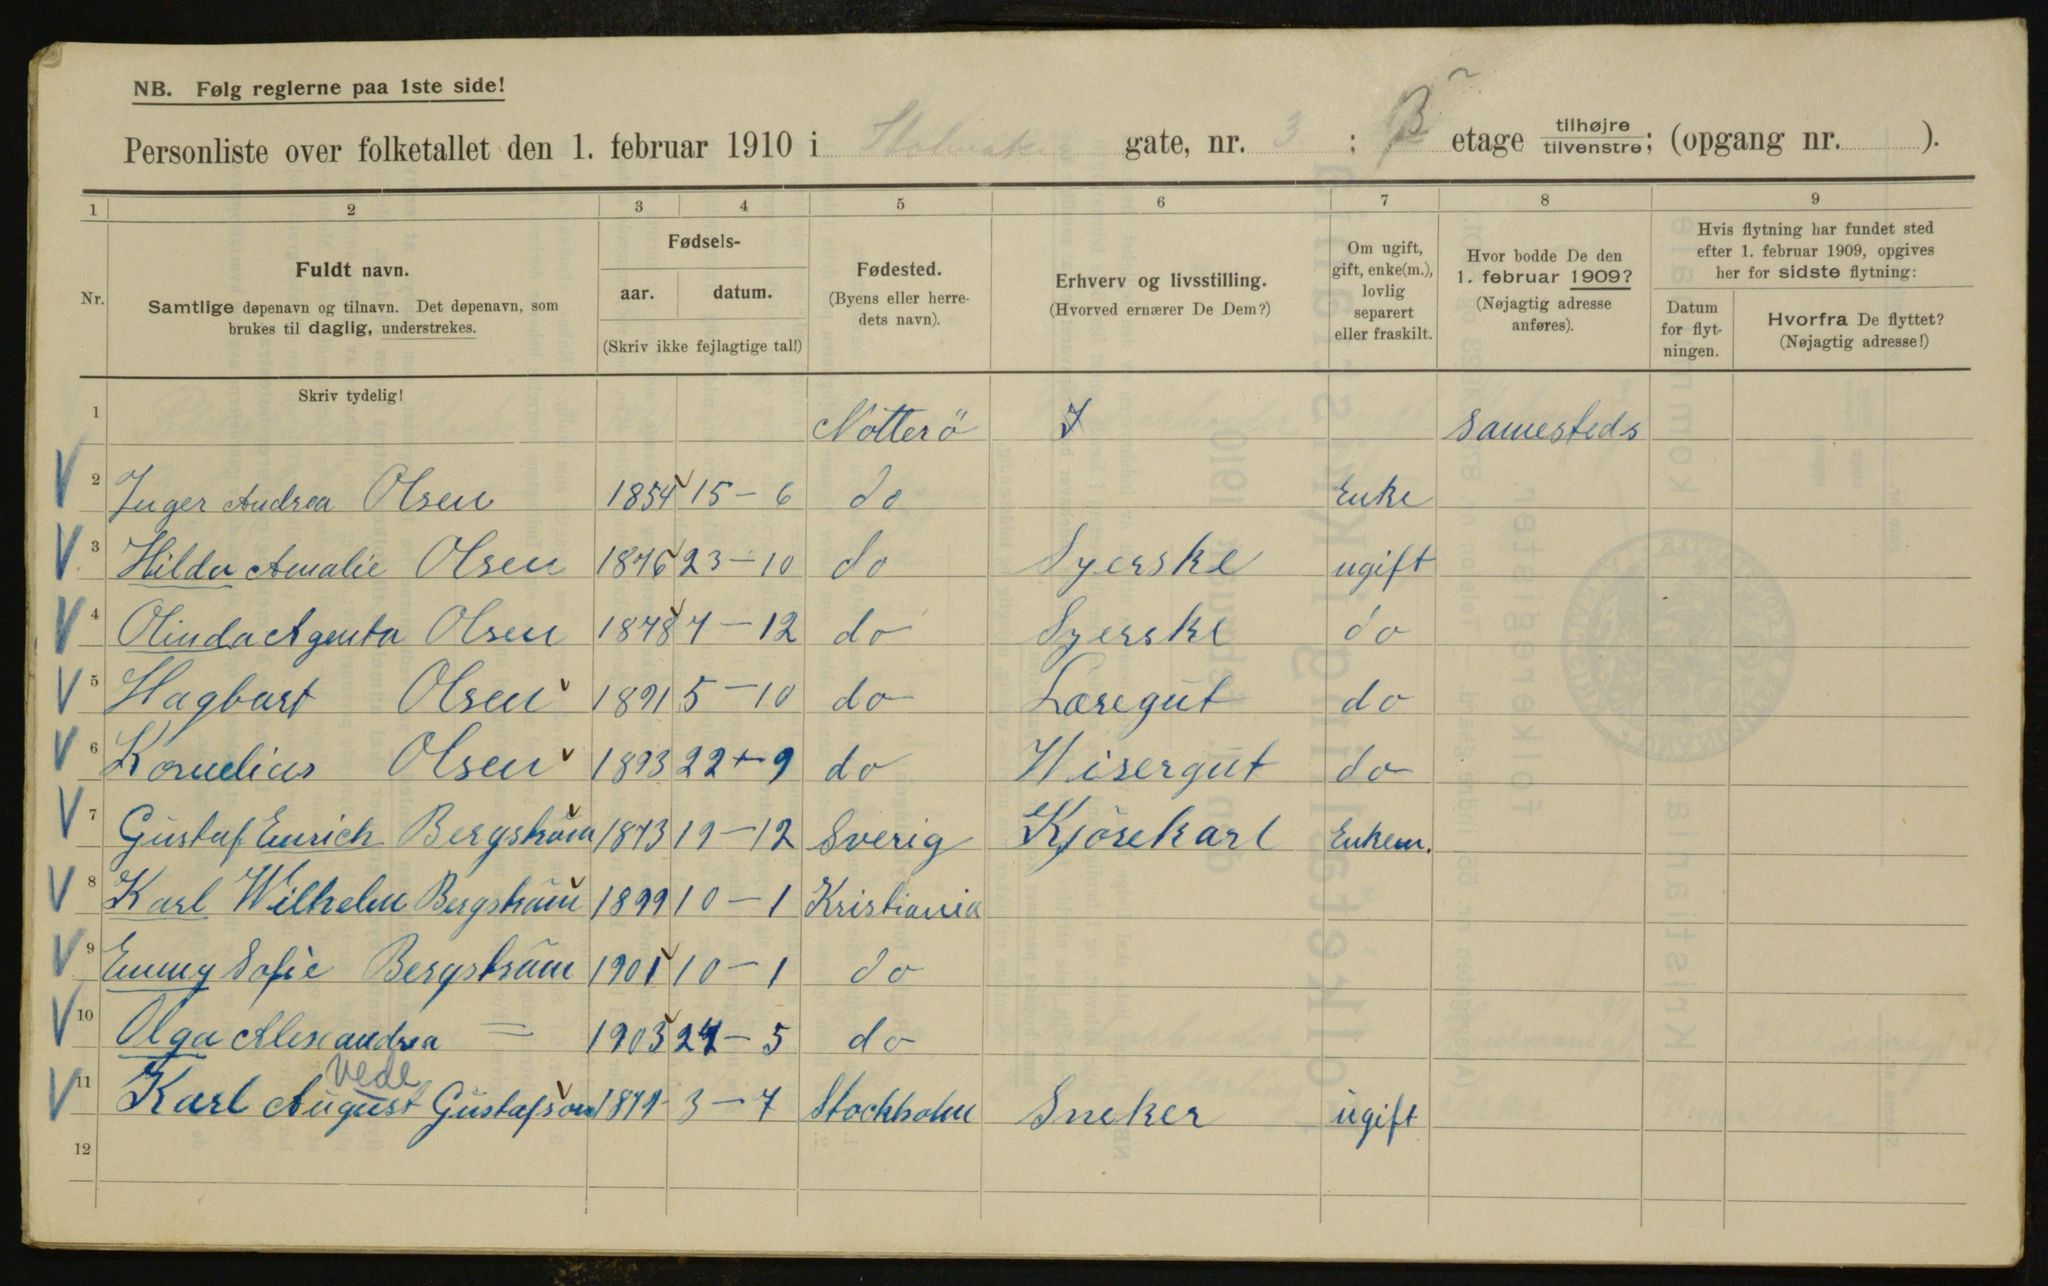 NB. Følg reglerne paa 1ste side!
Personliste over folketallet den 1. februar 1910 i gate, nr. 3 ; etage tilhøjre tilvenstre; (opgang nr. ).
1 2 3 4 5 6 7 8 9
Nr. Fuldt navn. Samtlige døpenavn og tilnavn. Det døpenavn, som brukes til daglig, understrekes.
Fødsels- aar. datum. (Skriv ikke fejlagtige tal!)
Fødested. (Byens eller herredets navn).
Erhverv og livsstilling. (Hvorved ernærer De Dem?)
Om ugift, gift, enke(m.), lovlig separert eller fraskilt.
Hvor bodde De den 1. februar 1909? (Nøjagtig adresse anføres).
Hvis flytning har fundet sted efter 1. februar 1909, opgives her for sidste flytning:
Datum for flytningen. Hvorfra De flyttet? (Nøjagtig adresse!)
Skriv tydelig!
1 Nötterö Samesteds
2 Inger Andrea Olsen 1854 15-6 do Enke
3 Hilda Amalie Olsen 1876 23-10 do Syerske ugift
4 Olinda Agenta Olsen 1878 7-12 do Syerske do
5 Hagbart Olsen 1891 5-10 do Læregut do
6 Kornelius Olsen 1893 22-9 do Wisergut do
7 Gustaf Enrich Bergström 1873 19-12 Sverig Kjörekarl Enkem.
8 Karl Wilhelm Bergström 1899 10-1 Kristiania
9 Emmy Sofie Bergström 1901 10-1 do
10 Olga Alexandra = 1903 24-5 do
Vede
11 Karl August Gustafson 1879 3-7 Stockholm Sneker ugift
12